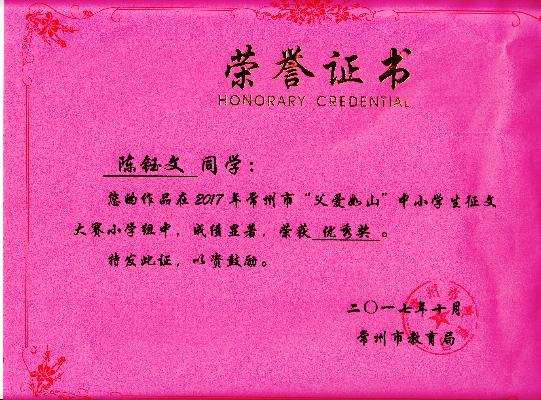 荣誉证书
HONORARY CREDENTIAL
陈钰文 同学：
您的作品在2017年常州市“父爱如山”中小学生征文
大赛小学组中，成绩显著，荣获 优秀奖 。
特发此证，以资鼓励。
二〇一七年十月
常州市教育局